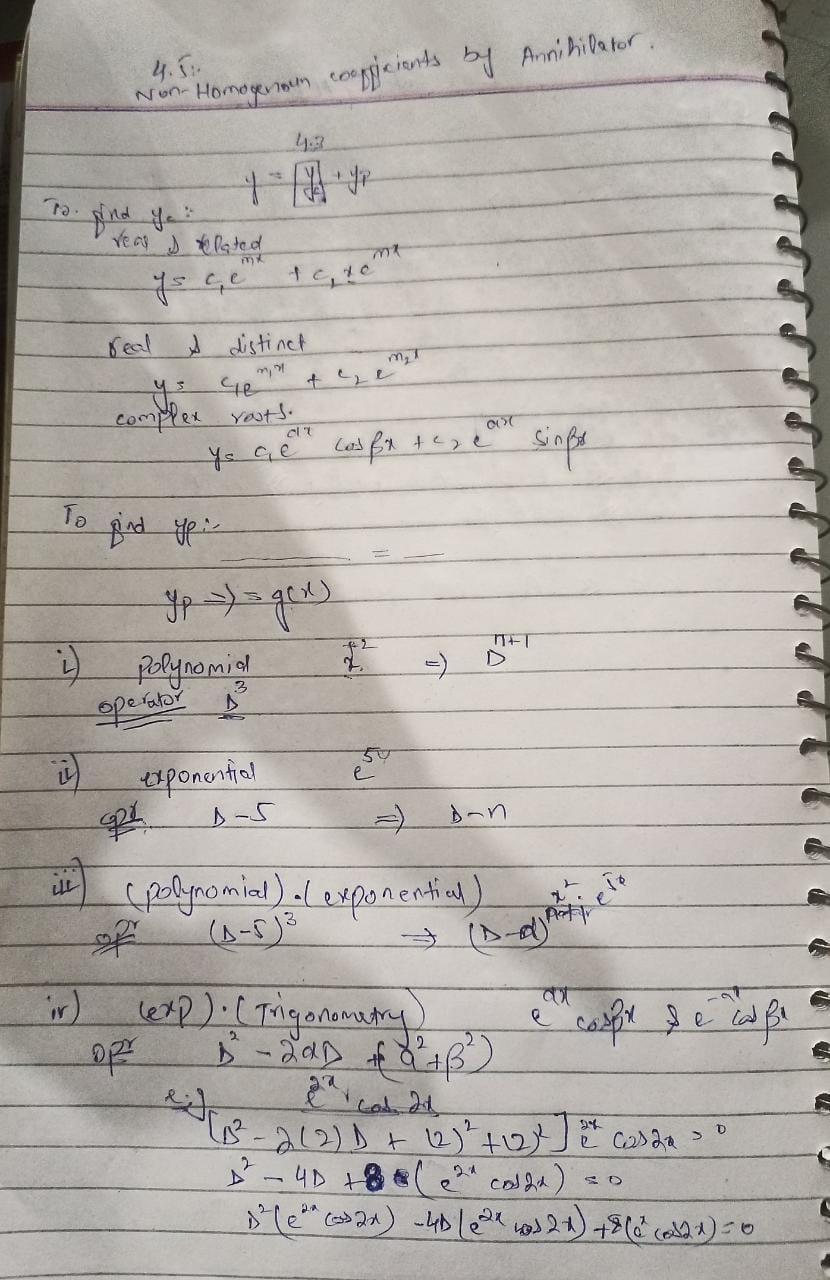 4.5:-
Non-Homogenoun coefficients by Annihilator.
4.3
y = [y_c] + yp
To find yc :-
real & repated
y = c₁e^mx + c₂xe^mx
real & distinct
y = c₁e^m₁x + c₂e^m₂x
complex roots.
y = c₁e^αx cosβx + c₂e^αx sinβx
To find yp :-
——— = —
yp => = g(x)
i) polynomial x² => D^n+1
operator D³
ii) exponential e^5x
opr. D-5 => D-n
iii) (polynomial).(exponential) x².e^5x
opr (D-5)³ => (D-α)
iv) (exp).(Trigonometry) e^αx cosβx & e^-αx cosβx
opr D² - 2αD + (α²+β²)
e.g e^2x cos2x
[D² - 2(2)D + (2)² + (2)²] e^2x cos2x = 0
D² - 4D + 8 (e^2x cos2x) = 0
D²(e^2x cos2x) - 4D(e^2x cos2x) + 8(e^x cos2x) = 0